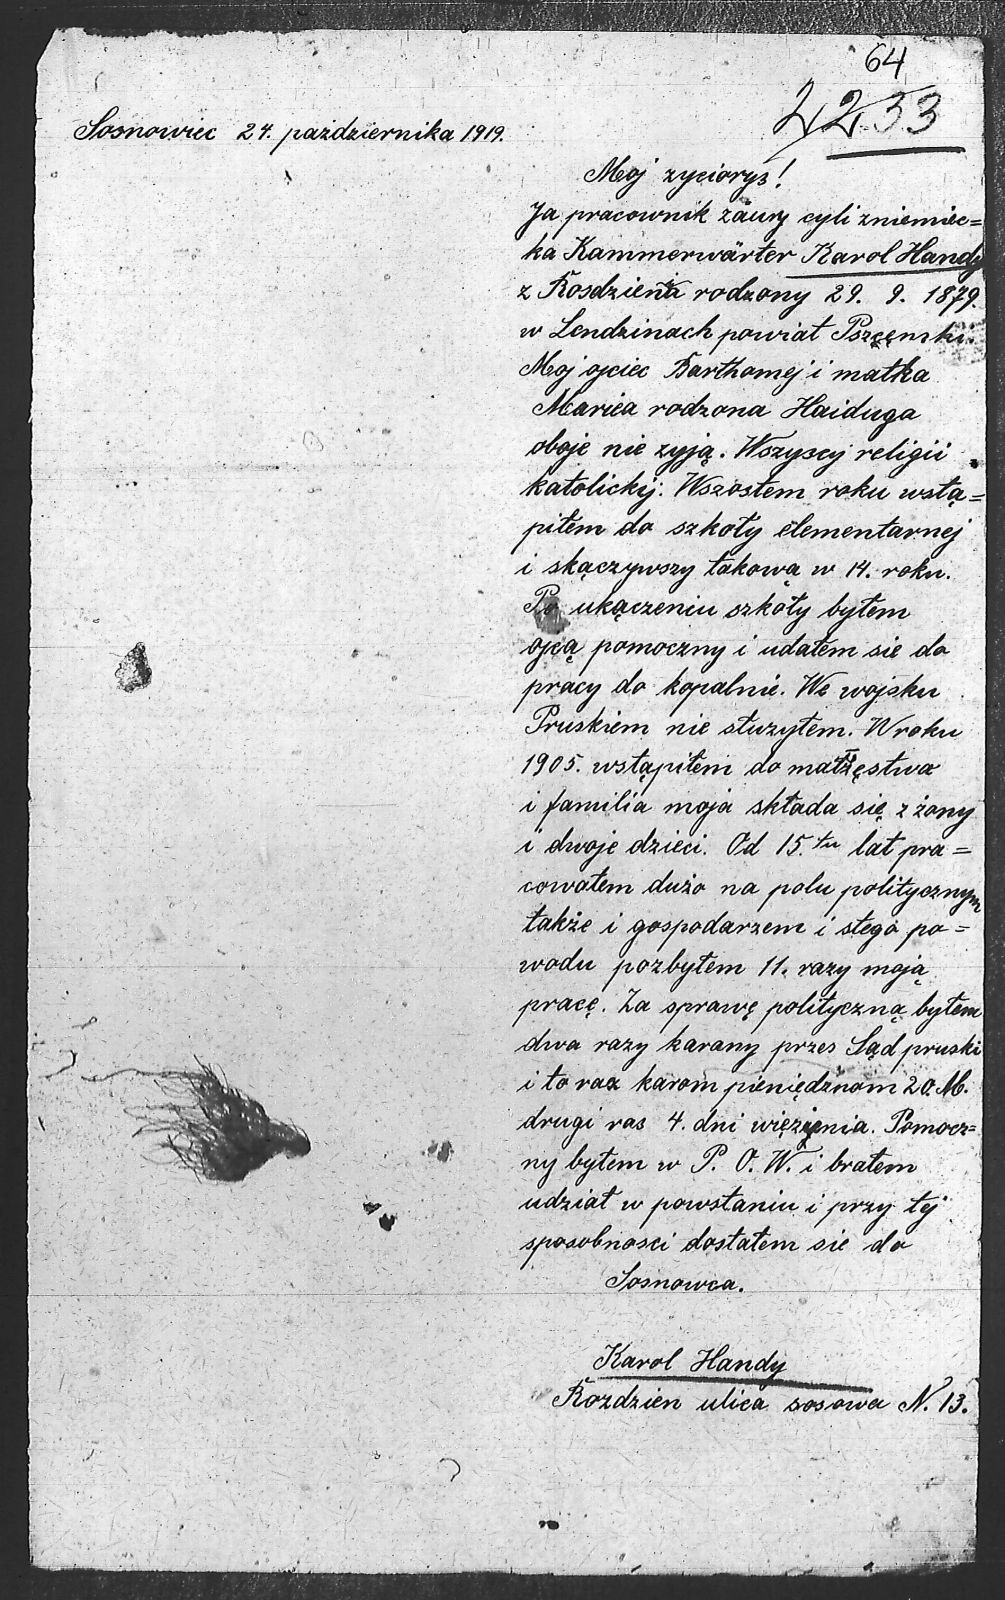 64
2233
Sosnowiec 24. października 1919.
Moj zyciorys!
Ja pracownik zaury cyli zniemiec=
ka Kammerwärter Karol Handy
z Rosdziena rodzony 29. 9. 1879.
w Lendzinach powiat
Moj ojciec Barthomej i matka
Mariea rodzona Haiduga
oboje nie zyją. Wszyscy religii
katolickij. Wszostem roku wstą=
piłem do szkoły elementarnej
i skączywszy takową w 14. roku.
Po ukączeniu szkoły byłem
ojcą pomoczny i udałem sie do
pracy do kopalnie. We wojsku
Pruskiem nie słuzyłem. W roku
1905. wstąpiłem do małżęstwa
i familia moja składa się z żony
i dwoje dzieci. Od 15.tu lat pra=
cowałem dużo na polu politycznym
także i gospodarzem i stego po=
wodu pozbyłem 11. razy moją
pracę. Za sprawę polityczną byłem
dwa razy karany przes Sąd pruski
i to raz karom pieniędznom 20. M.
drugi ras 4. dni więzienia. Pomocz=
ny byłem w P. O. W. i brałem
udział w powstaniu i przy tej
sposobnosci dostałem sie do
Sosnowca.
Karol Handy
Rozdzien ulica sosowa N. 13.